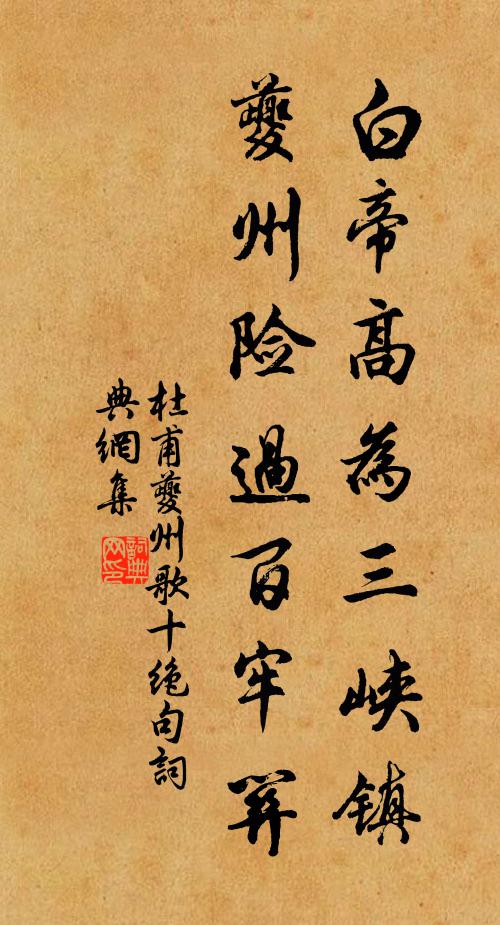 白帝高為三峡镇
夔州险過百牢関
杜甫夔州歌十绝句詞
典網集
詞典
网印